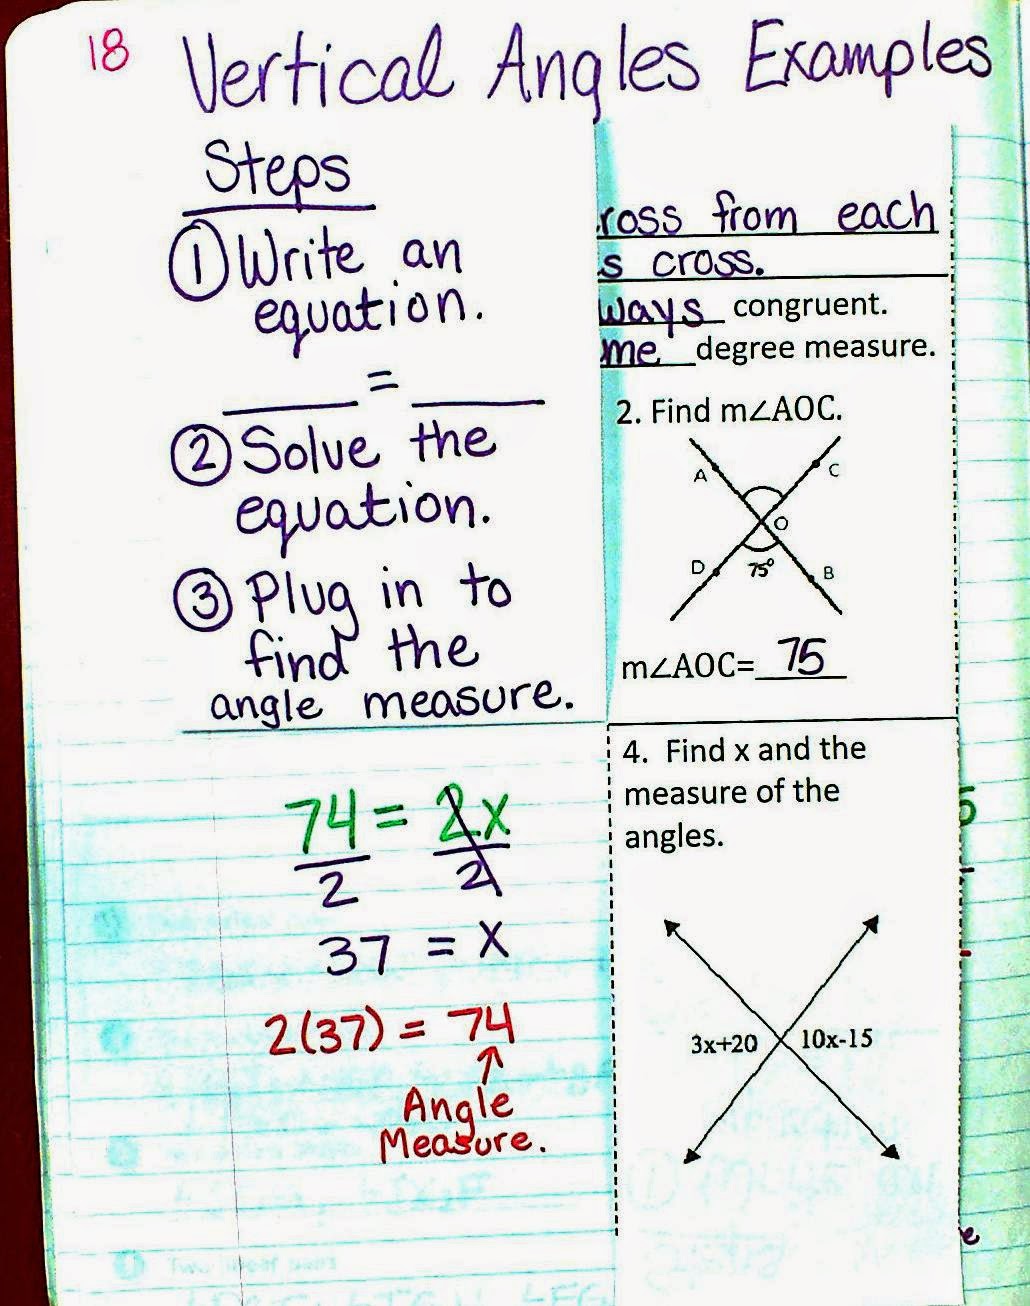 18 Vertical Angles Examples
Steps
① Write an
equation.
____ = ____
② Solve the
equation.
③ Plug in to
find the
angle measure.
ross from each
s cross.
ways congruent.
me degree measure.
2. Find m∠AOC.
A
C
O
D
75°
B
m∠AOC= 75
74 = 2x
2 2
37 = x
2(37) = 74
↑
Angle
Measure.
4. Find x and the
measure of the
angles.
3x+20 10x-15
5
e